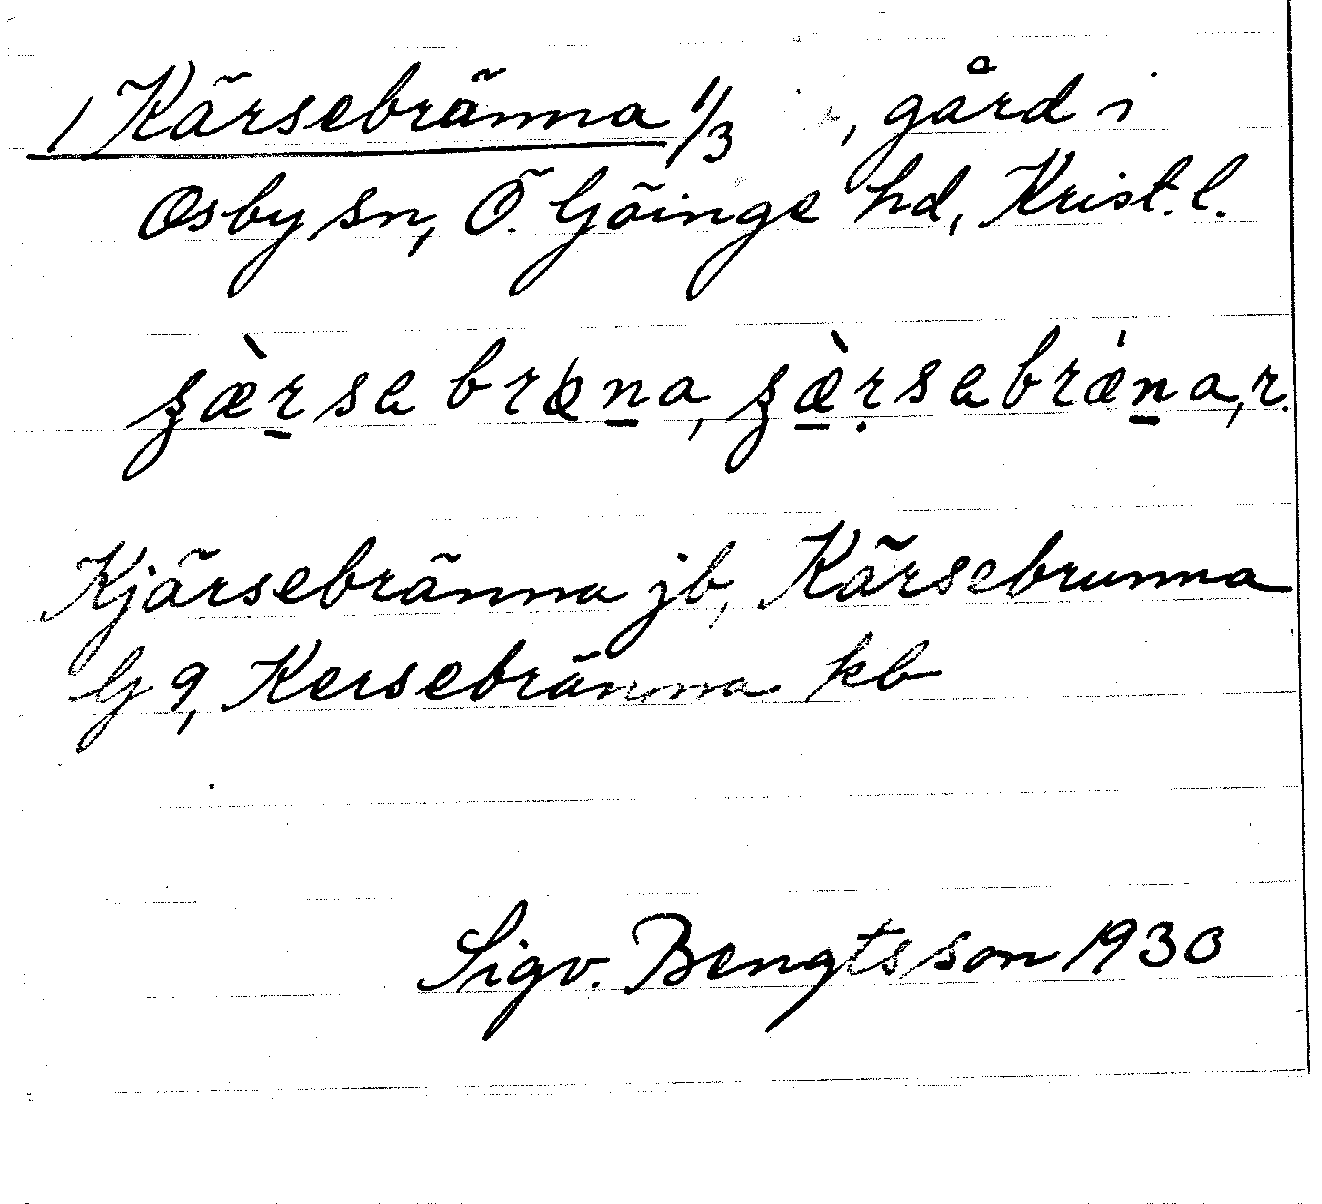 1 Kärsebränna 1/3 , gård i
Osby sn, Ö. Göinge hd, Krist. l.
ʒæ̀rsa bræna, ʒæ̀rsabræ̍na, r.
Kjärsebränna jb, Kärsebrunna
G 9, Kersebränna kb
Sigv. Bengtsson 1930